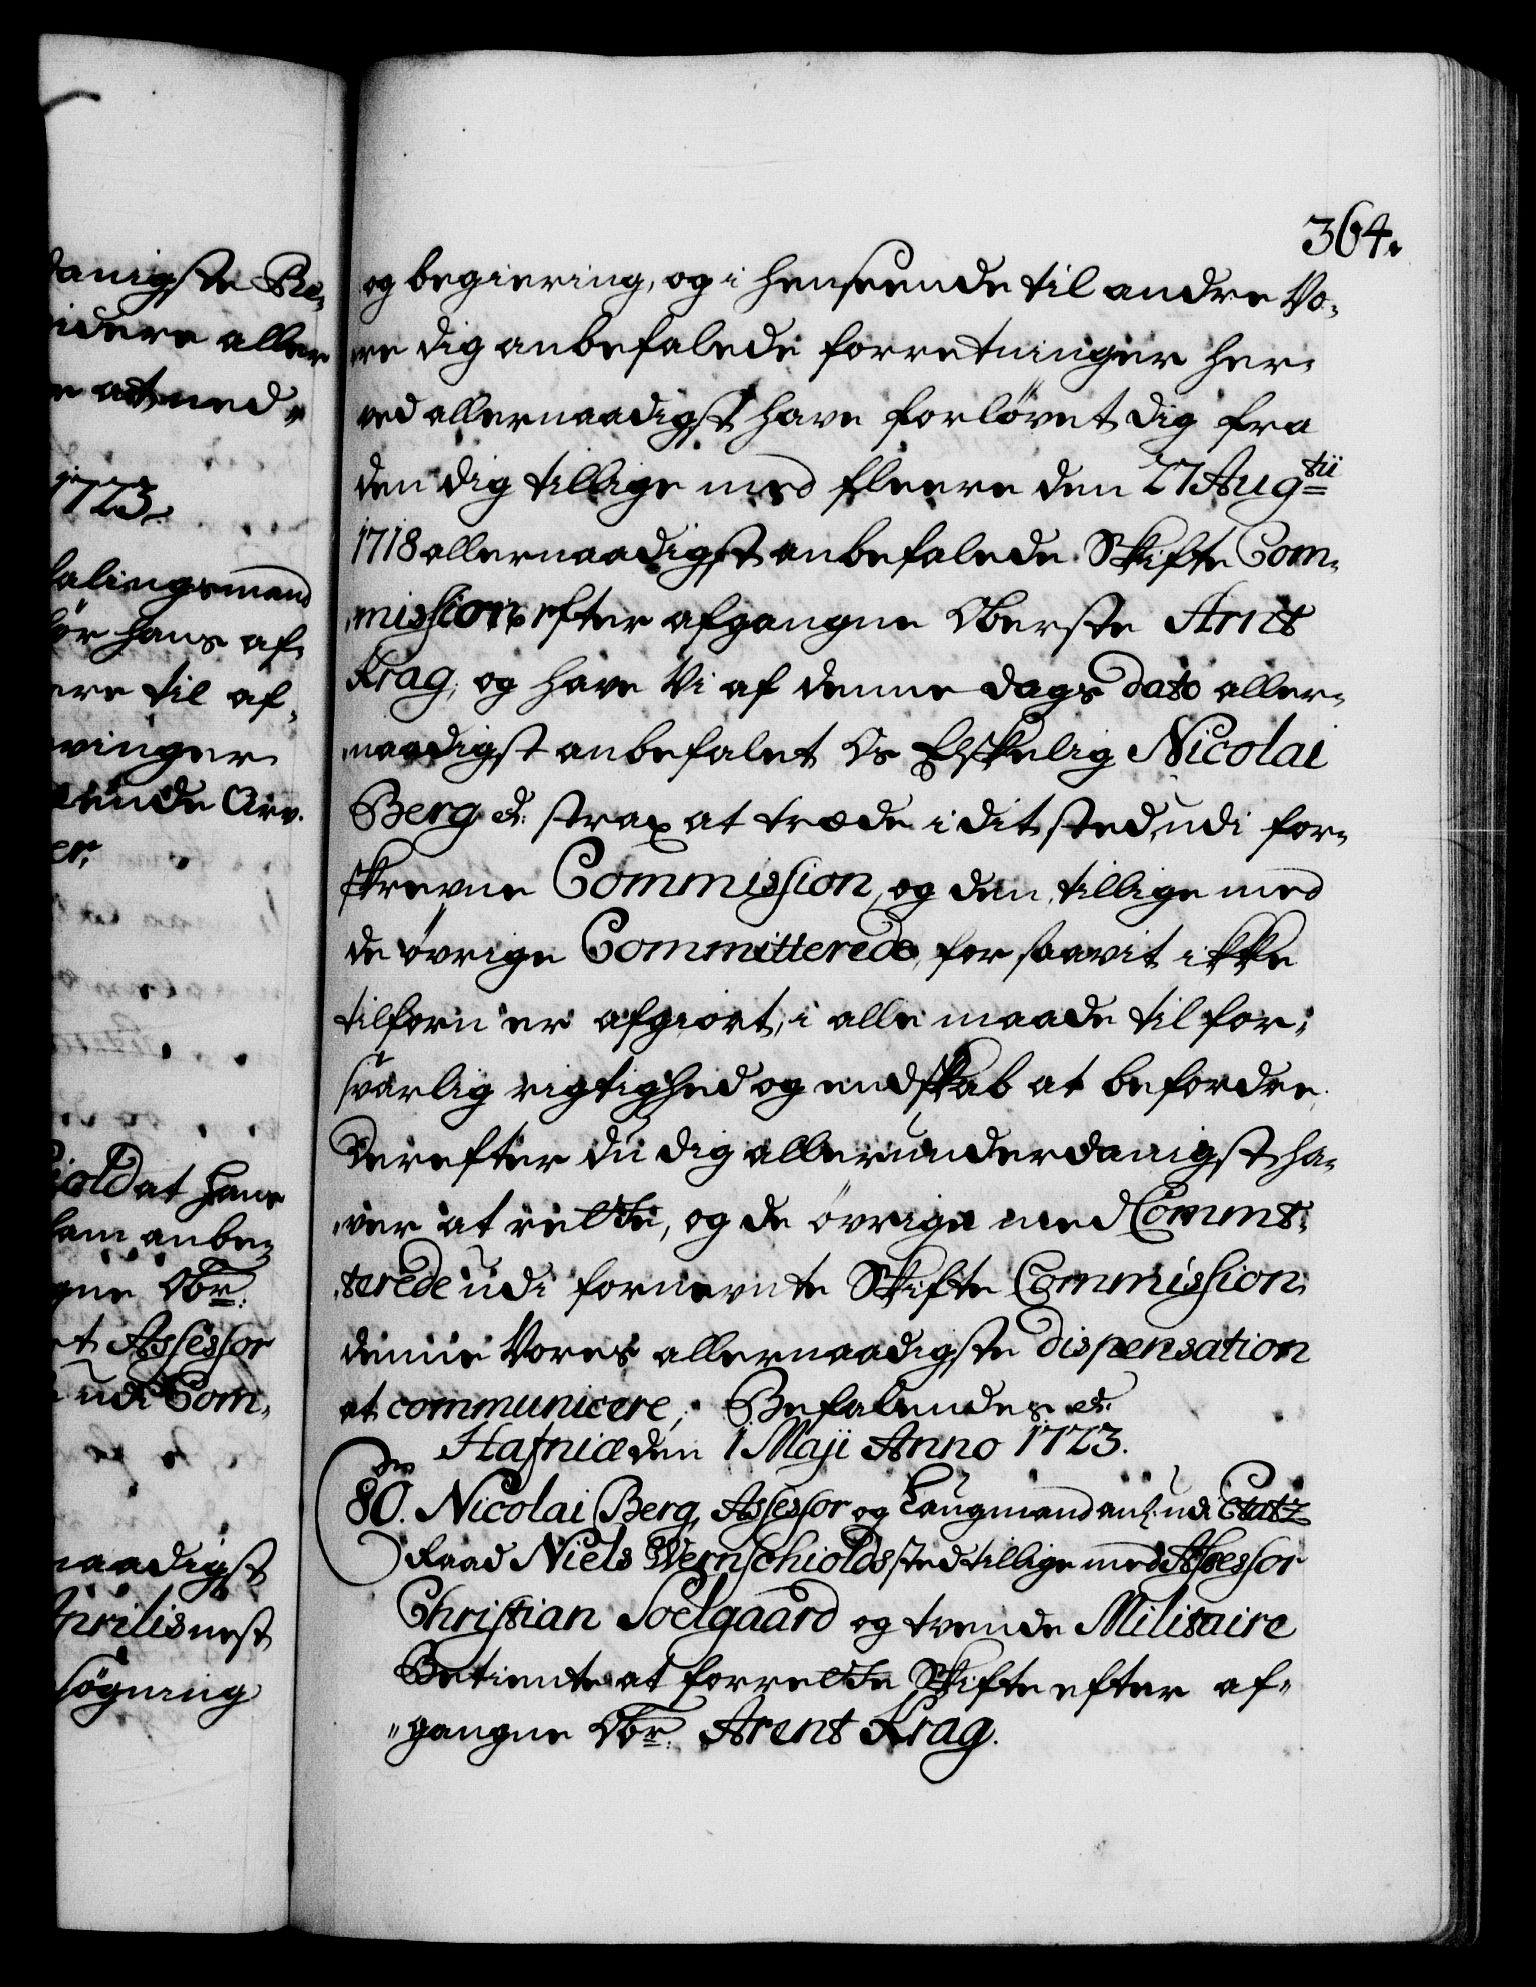 364.
og begiering, og i henseende til andre Vo,
re dig anbefalede forretninger her,
ved allernaadigst have forlövet dig fra
den dig tillige med fleere den 27 Aug:tii
1718 allernaadigst anbefalede Skifte Com,
,mission efter afgangne Oberste Arnt
Krag, og have Vi af denne dags dato aller,
,naadigst anbefalet Os Elskelig Nicolai
Berg &: strax at træde i dit sted, udi for,
skrevne Commission, og den, tillige med
de övrige Committerede, for saavit ikke
tilforn er afgiort, i alle maade til for,
svarlig rigtighed og endskab at befordre.
Derefter du dig allerunderdanigst ha,
,ver at rette, og de övrige med Commit,
,terede udi fornevnte Skifte Commission
denne Vores allernaadigste dispensation
at communicere, Befalendes &:
Hafniæ den 1 Maji Anno 1723.
80. Nicolai Berg, Assessor og Laugmand anl: udi Etatz
Raad Niels Wernschiolds sted tillige med Assessor
Christian Soelgaard og tvende Militaire
Betiente at forrette Skifte efter af"
"gangne Obr: Arent Krag.
danigste Be,
videre aller
e at med"
1723.
falingsmand
för hans af,
ere til af,
vinger
ende Arv.
er,
iold at hans
ham anbe,
gne Obr:
et Assessor
udi Com,
naadigst
Aprilis nest
sögning